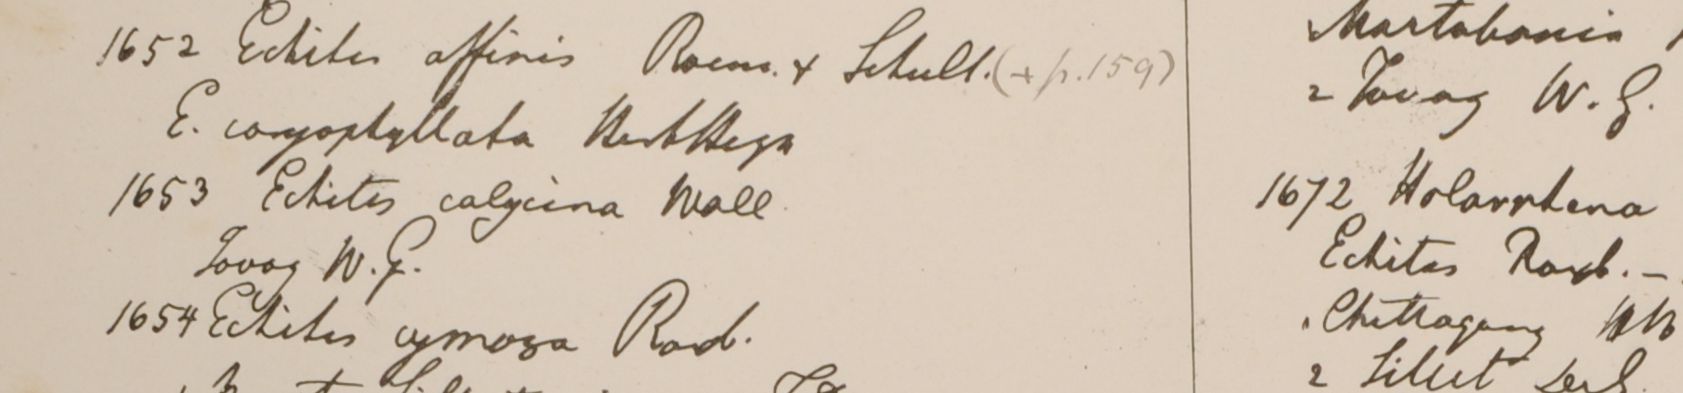 1652 Echites affinis Roem. & Schult. (+ p. 159)
E. caryophyllata Herb Heyn
1653 Echites calycina Wall
Tavoy W. G.
1654 Echites cymosa Roxb.
Martabania
2 Tavoy W. G.
1672 Holarrhena
Echites Roxb. –
Chittagong HB
2 Sillet